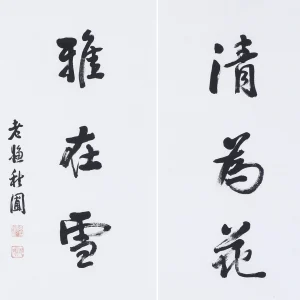 清為花
雅在雪
老趣秋圃